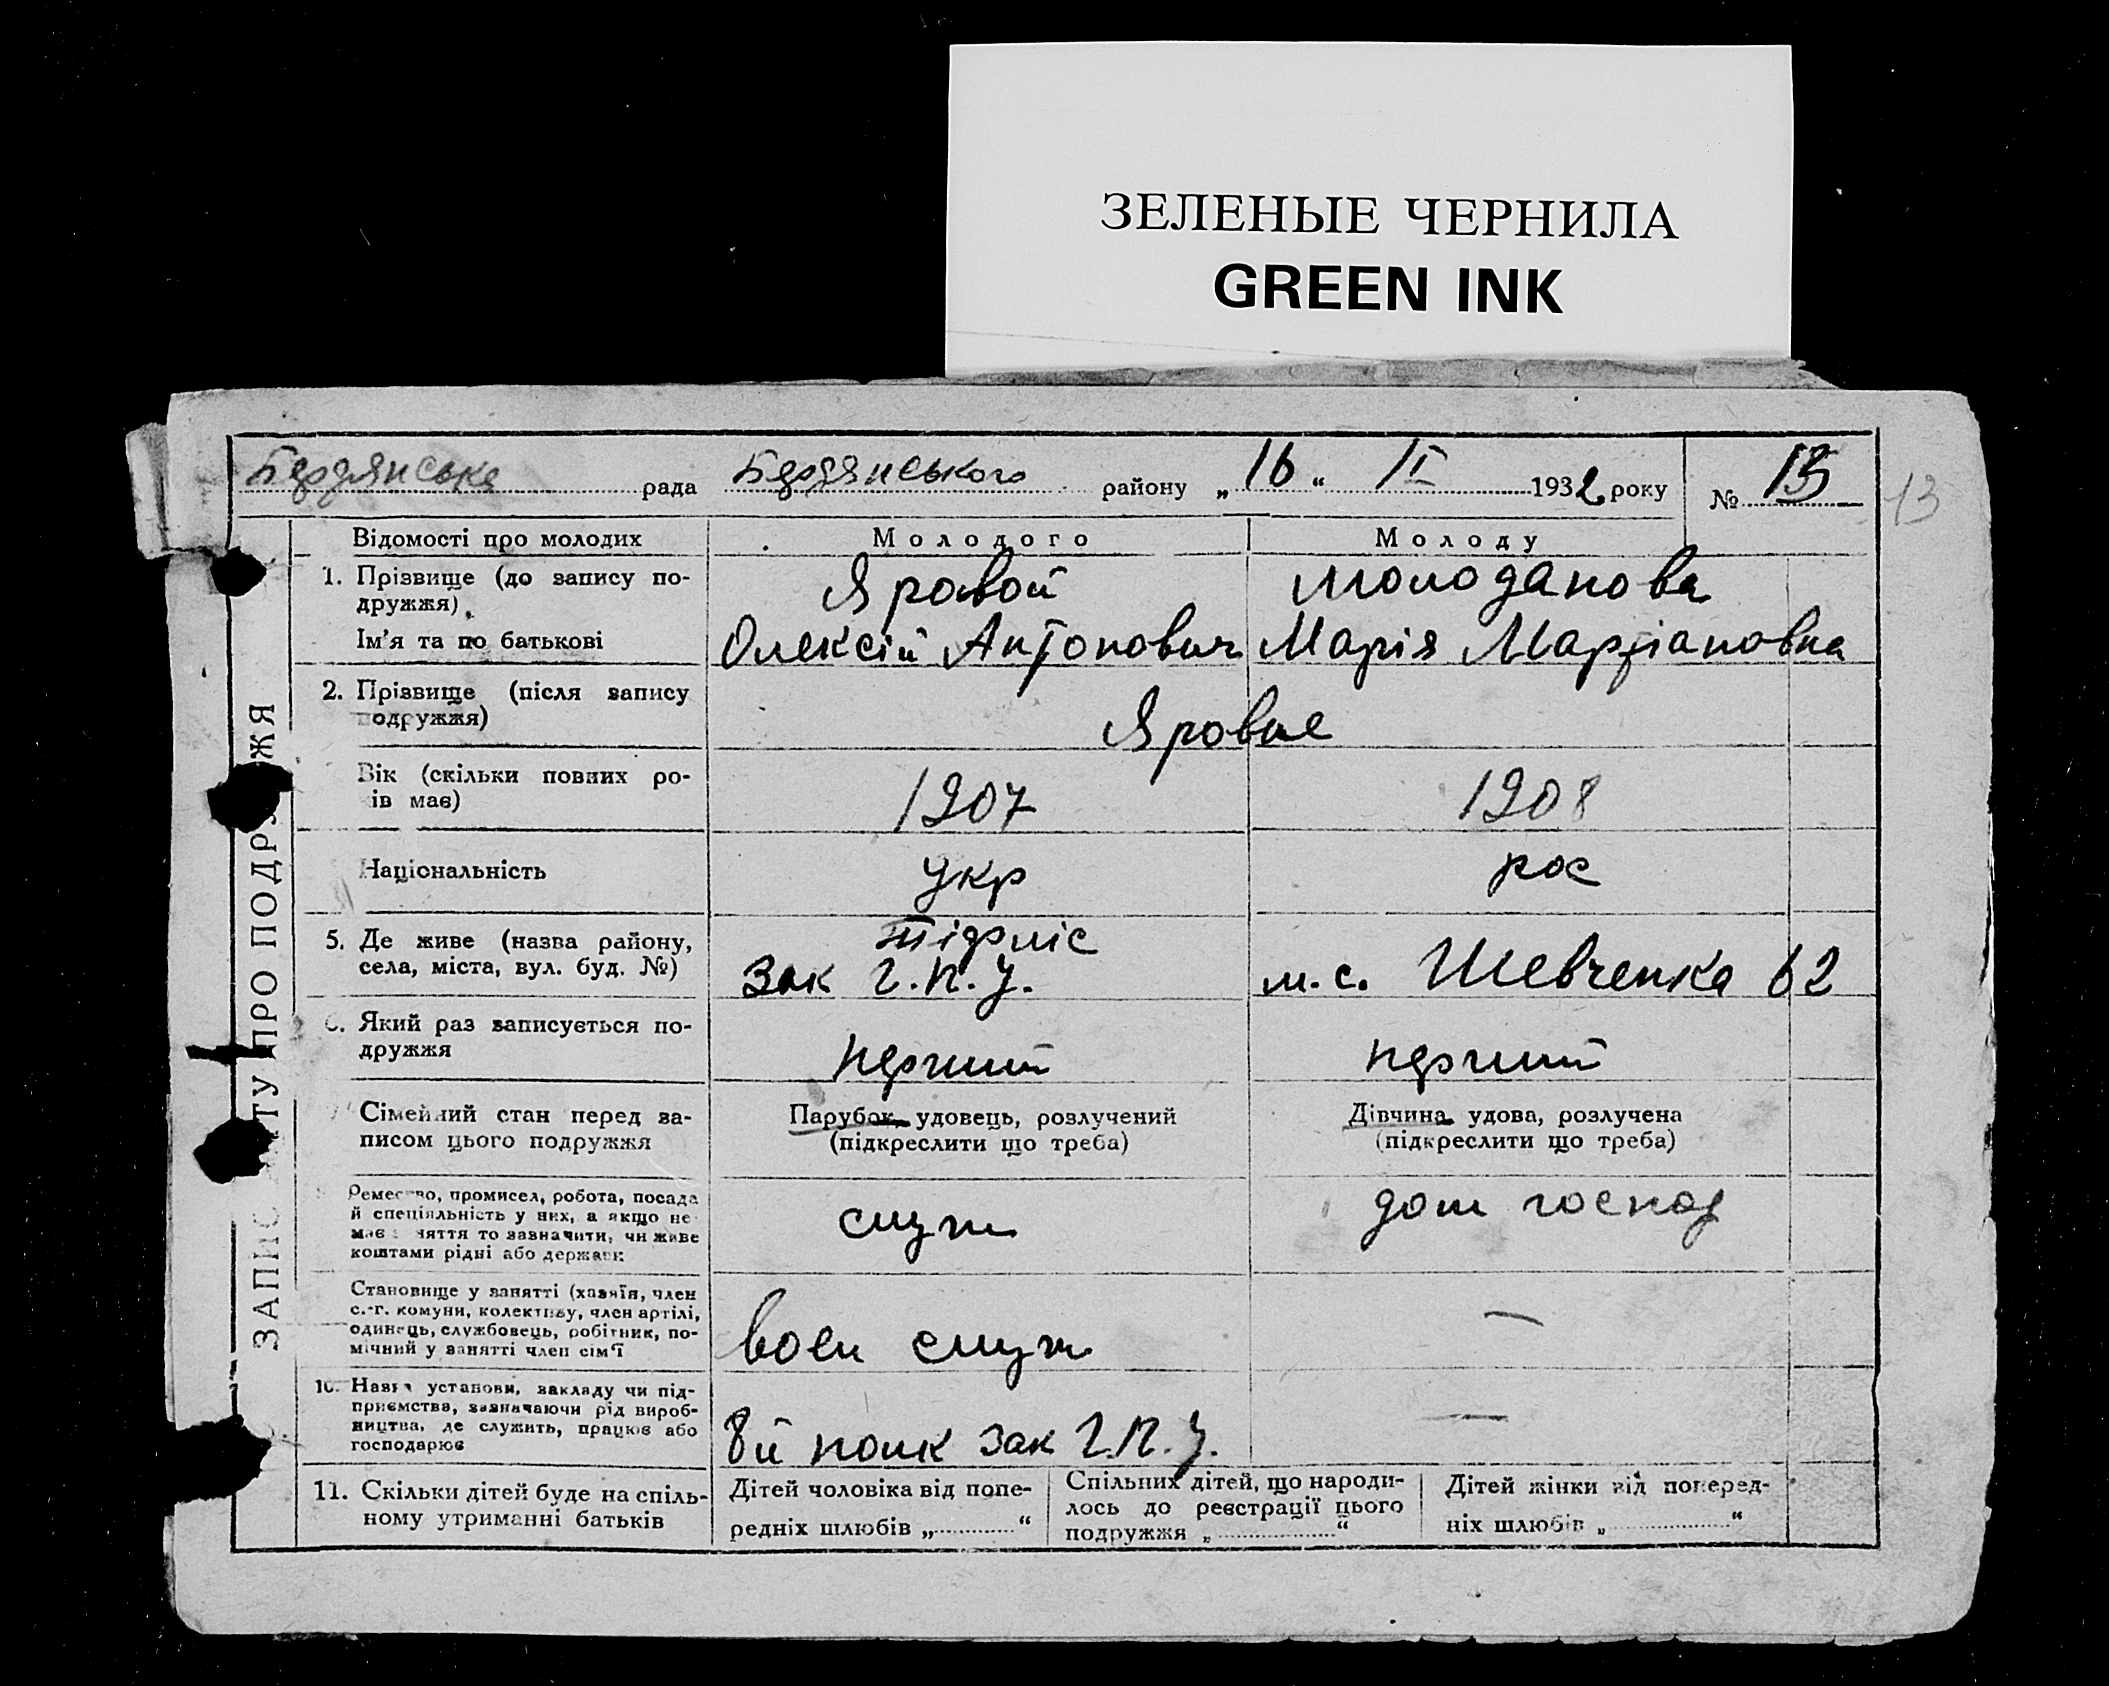 ЗЕЛЕНЫЕ ЧЕРНИЛА
GREEN INK
Бердянська рада Бердянського району „16“ II 1932 року № 15
13
ЗАПИС АКТУ ПРО ПОДРУЖЖЯ
Відомості про молодих Молодого Молоду
1. Прізвище (до запису по-
дружжя)
Яровой Молоданова
Ім'я та по батькові Олексій Антонович Марія Мартіановна
2. Прізвище (після запису
подружжя)
Яровые
Вік (скільки повних ро-
ів має)
1907 1908
Національність укр рос
5. Де живе (назва району,
села, міста, вул. буд. №)
Тіфліс
Зак Г.П.У. м.с. Шевченка 62
6. Який раз записується по-
дружжя
перший перший
Сімейний стан перед за-
писом цього подружжя
Парубок, удовець, розлучений
(підкреслити що треба)
Дівчина, удова, розлучена
(підкреслити що треба)
Ремество, промисел, робота, посада
й спеціяльність у них, а якщо не
має заняття то зазначити, чи живе
коштами рідні або держави
служ дом господ
Становище у занятті (хазяїн, член
с.-г. комуни, колективу, член артілі,
одинець, службовець, робітник, по-
мічний у занятті член сім'ї
воен служ —
10. Назва установи, закладу чи під-
приємства, зазначаючи рід вироб-
ництва, де служить, працює або
господарює
8й полк Зак Г.П.У. —
11. Скільки дітей буде на спіль-
ному утриманні батьків
Дітей чоловіка від попе-
редніх шлюбів „ “
Спільних дітей, що народи-
лось до реєстрації цього
подружжя „ “
Дітей жінки від поперед-
ніх шлюбів „ “